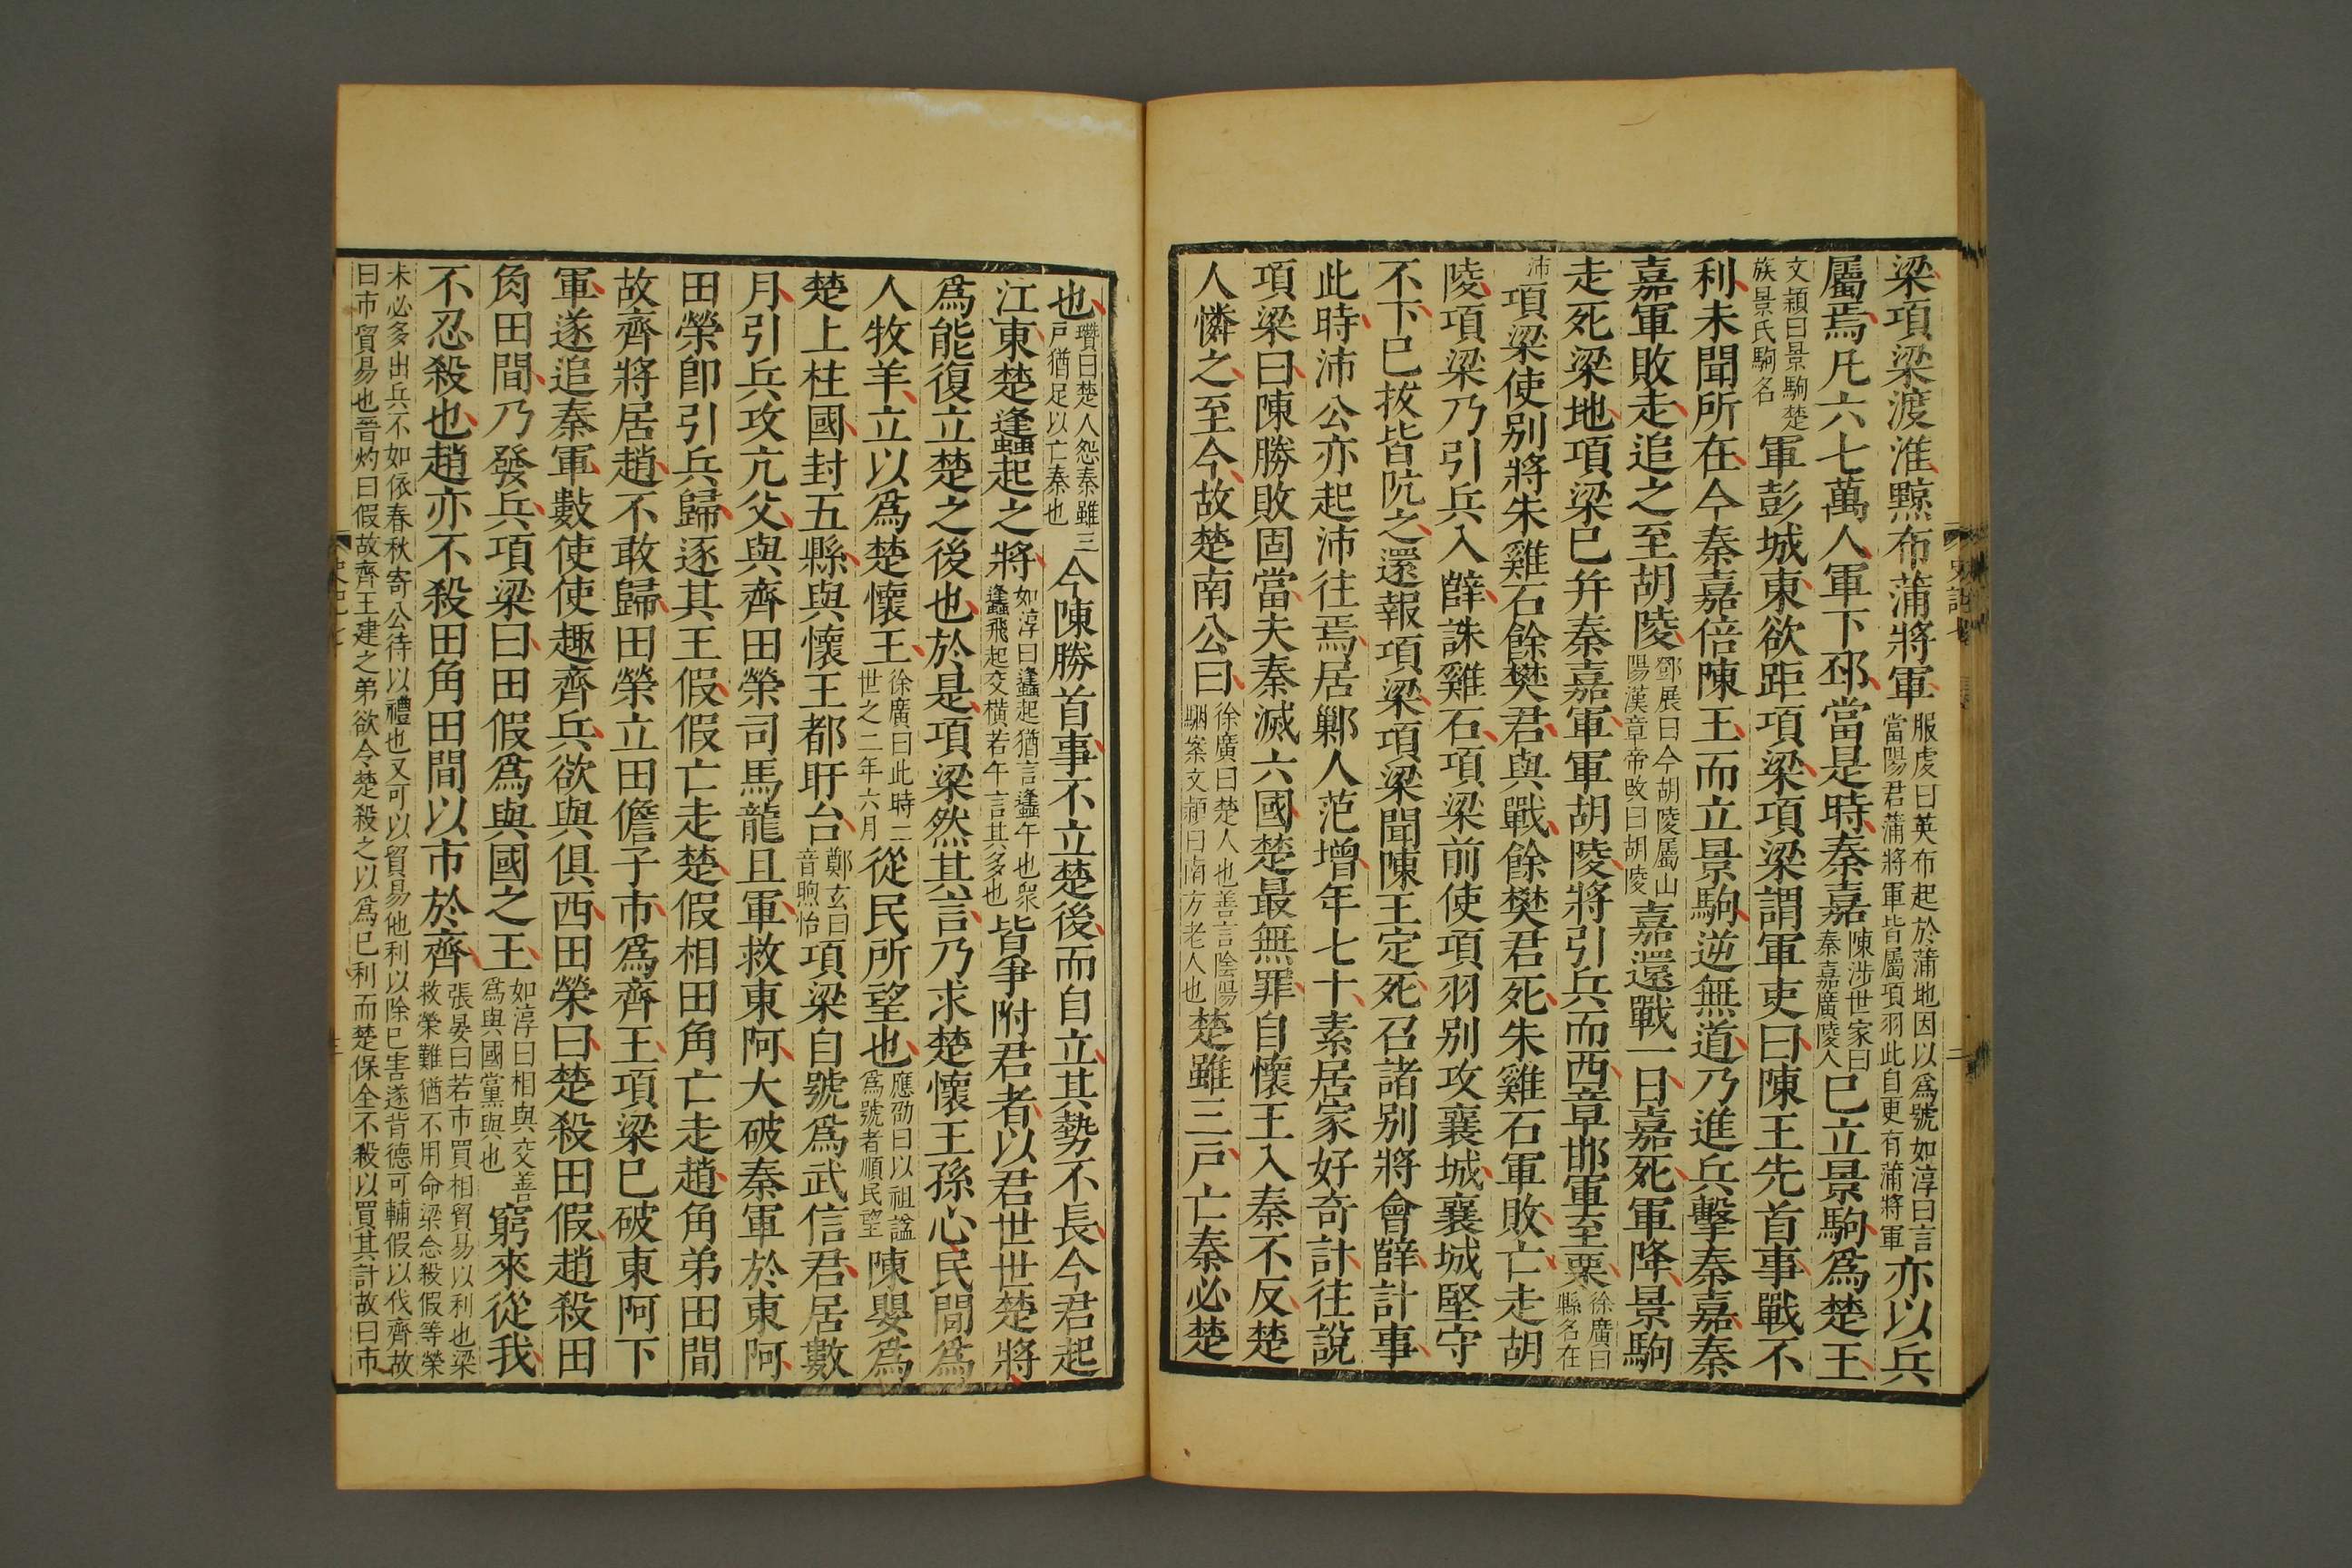 梁項梁渡淮黥布蒲將軍服虔曰英布起於蒲地因以爲號如淳曰言當陽君蒲將軍皆屬項羽此自更有蒲將軍亦以兵
屬焉凡六七萬人軍下邳當是時秦嘉陳涉世家曰秦嘉廣陵人已立景駒爲楚王
文穎曰景駒楚族景氏駒名軍彭城東欲距項梁項梁謂軍吏曰陳王先首事戰不
利未聞所在今秦嘉倍陳王而立景駒逆無道乃進兵擊秦嘉秦
嘉軍敗走追之至胡陵鄧展曰今胡陵屬山陽漢章帝改曰胡陵嘉還戰一日嘉死軍降景駒
走死梁地項梁已幷秦嘉軍軍胡陵將引兵而西章邯軍至栗徐廣曰縣名在
沛項梁使別將朱雞石餘樊君與戰餘樊君死朱雞石軍敗亡走胡
陵項梁乃引兵入薛誅雞石項梁前使項羽別攻襄城襄城堅守
不下已拔皆阬之還報項梁項梁聞陳王定死召諸別將會薛計事
此時沛公亦起沛往焉居鄛人范增年七十素居家好奇計往說
項梁曰陳勝敗固當夫秦滅六國楚最無罪自懷王入秦不反楚
人憐之至今故楚南公曰徐廣曰楚人也善言陰陽駰案文穎曰南方老人也楚雖三戶亡秦必楚
也瓚曰楚人怨秦雖三戶猶足以亡秦也今陳勝首事不立楚後而自立其勢不長今君起
江東楚蠭起之將如淳曰蠭起猶言蠭午也衆蠭飛起交橫若午言其多也皆爭附君者以君世世楚將
爲能復立楚之後也於是項梁然其言乃求楚懷王孫心民間爲
人牧羊立以爲楚懷王徐廣曰此時二世之二年六月從民所望也應劭曰以祖諡爲號者順民望陳嬰爲
楚上柱國封五縣與懷王都盱台鄭玄曰音煦怡項梁自號爲武信君居數
月引兵攻亢父與齊田榮司馬龍且軍救東阿大破秦軍於東阿
田榮卽引兵歸逐其王假假亡走楚假相田角亡走趙角弟田間
故齊將居趙不敢歸田榮立田儋子市爲齊王項梁已破東阿下
軍遂追秦軍數使使趣齊兵欲與俱西田榮曰楚殺田假趙殺田
角田間乃發兵項梁曰田假爲與國之王如淳曰相與交善爲與國黨與也窮來從我
不忍殺也趙亦不殺田角田間以市於齊張晏曰若市買相貿易以利也梁救榮難猶不用命梁念殺假等榮
未必多出兵不如依春秋寄公待以禮也又可以貿易他利以除己害遂背德可輔假以伐齊故
曰市貿易也晉灼曰假故齊王建之弟欲令楚殺之以爲己利而楚保全不殺以買其計故曰市